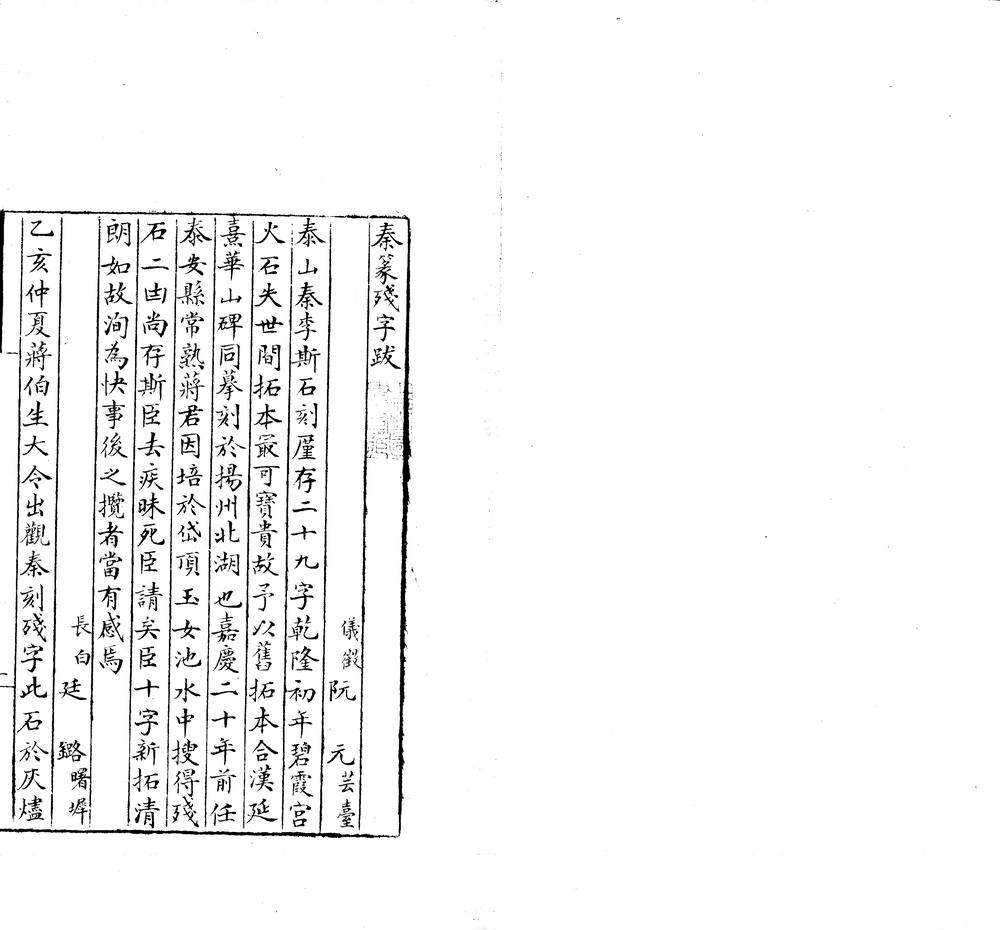 秦篆殘字跋
儀徵阮元芸臺
泰山秦李斯石刻厪存二十九字乾隆初年碧霞宮
火石失世間拓本最可寶貴故予以舊拓本合漢延
熹華山碑同摹刻於揚州北湖也嘉慶二十年前任
泰安縣常熟蔣君因培於岱頂玉女池水中搜得殘
石二凷尚存斯臣去疾昧死臣請矣臣十字新拓清
朗如故洵為快事後之攬者當有感焉
長白廷鏴曙墀
乙亥仲夏蔣伯生大令出觀秦刻殘字此石於灰燼